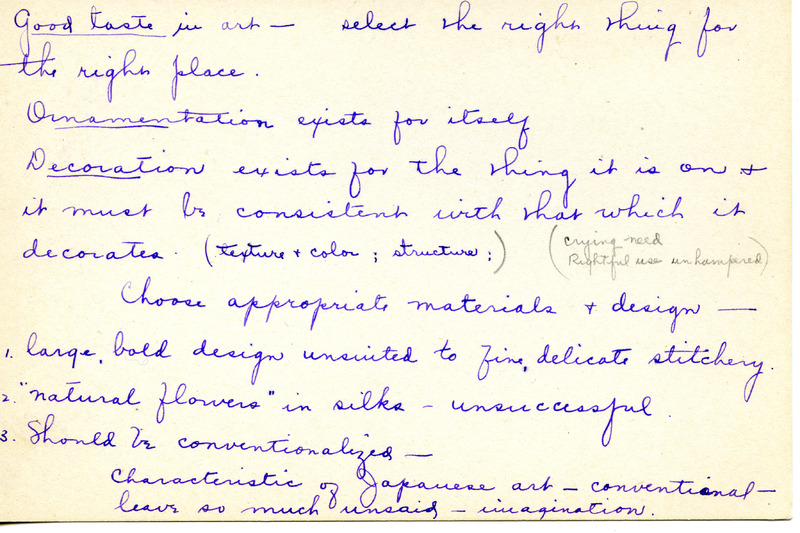 Good taste in art — select the right thing for
the right place.
Ornamentation exists for itself
Decoration exists for the thing it is on +
it must be consistent with that which it
decorates. (texture + color ; structure ;) (crying need
Rightful use unhampered)
Choose appropriate materials + design —
1. large, bold design unsuited to fine, delicate stitchery.
2. "natural flowers" in silks - unsuccessful.
3. Should be conventionalized —
Characteristic of Japanese art - conventional —
leave so much unsaid - imagination.